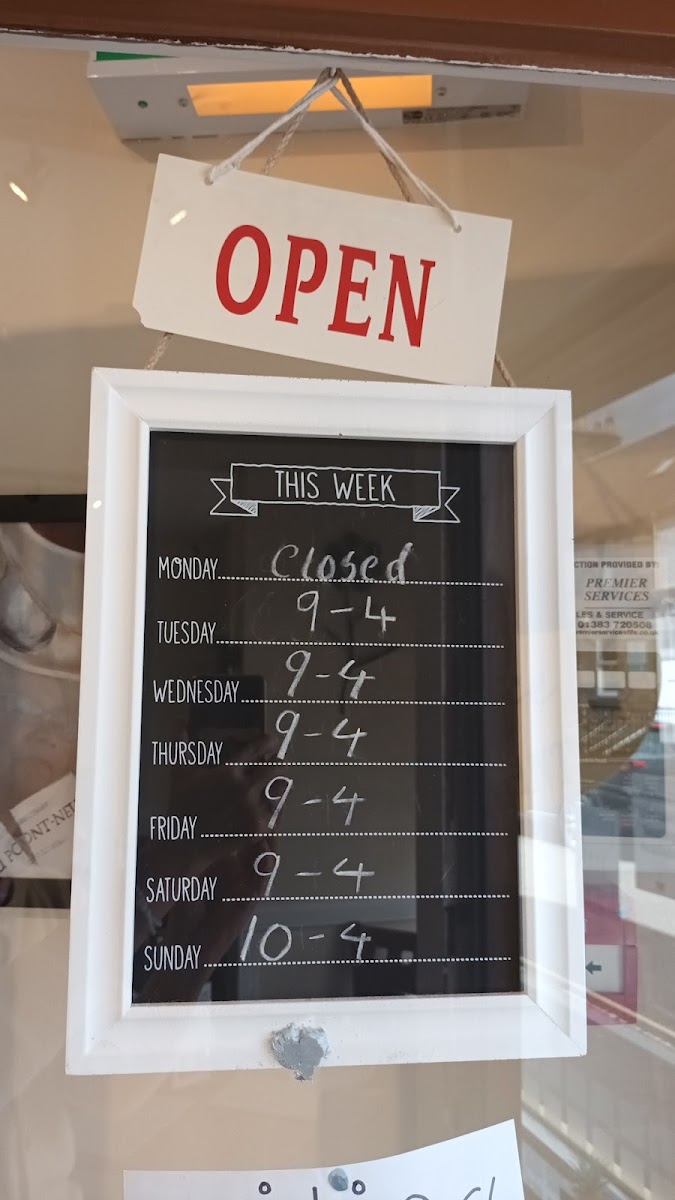 OPEN
THIS WEEK
MONDAY Closed
TUESDAY 9-4
WEDNESDAY 9-4
THURSDAY 9-4
FRIDAY 9-4
SATURDAY 9-4
SUNDAY 10-4
CTION PROVIDED BY:
PREMIER
SERVICES
LES & SERVICE
01383 720508